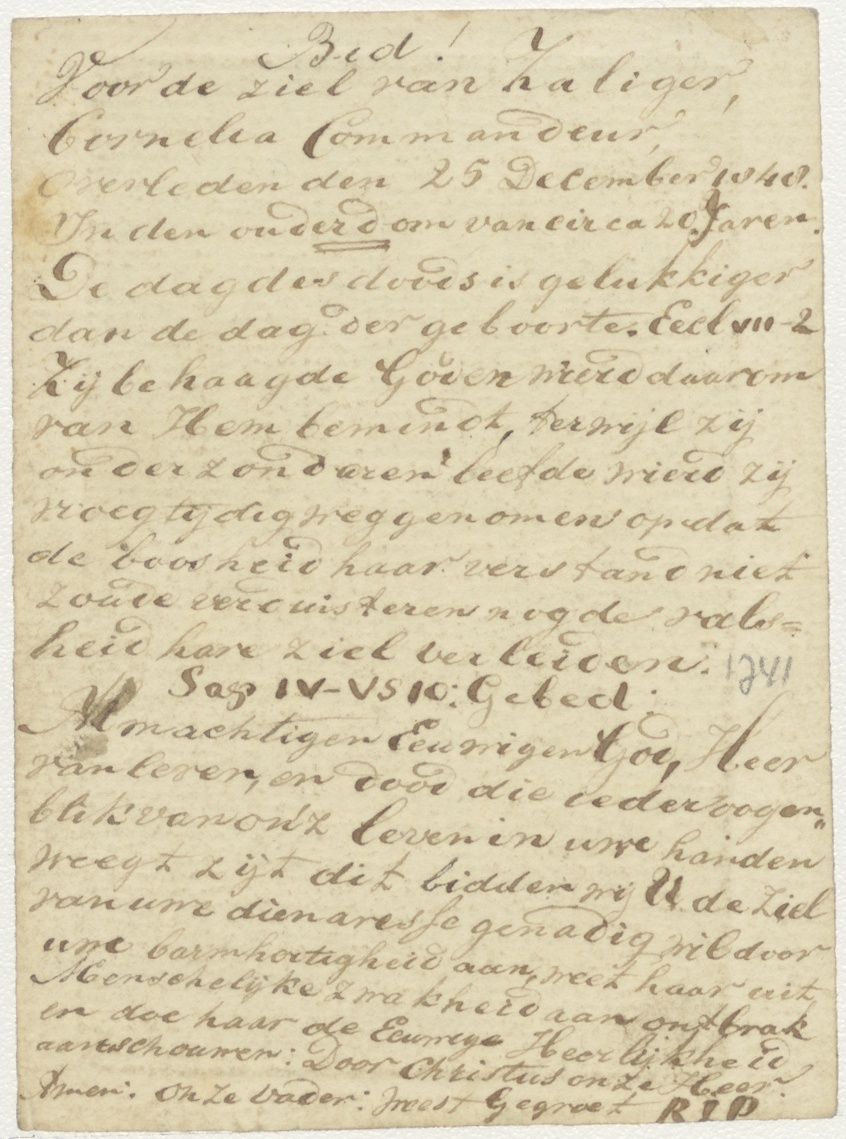 Bid!
Voor de ziel van Zaliger,
Cornelia Commandeur,
Overleden den 25 December 1848.
In den ouderdom van circa 20 Jaren.
De dag des doods is gelukkiger
dan de dag der geboorte. Eccl VII-2
Zij behaagde Goden wierd daarom
van Hem bemindt, terwijl zij
onder zondaren leefde wierd zij
vroegtydig weggenomen opdat
de boosheid haar verstand niet
zoude verduisteren nog de vals=
heid hare ziel verleiden.
1841
Sap IV-VS 10: Gebed:
Almachtigen Eeuwigen God, Heer
van leven, en dood die ieder oogen„
blik van onz leven in uwe handen
weegt zijt dit bidden wij U de Ziel
van uwe dienaresse genadig wil door
uwe barmhertigheid aan, weet haar uit
Menschelijke zwakheid aan ontbrak
en doe haar de Eeuwige Heerlijkheid
aanschouwen: Door Christus onze Heer.
Amen: Onze Vader: Weest Gegroet R I P